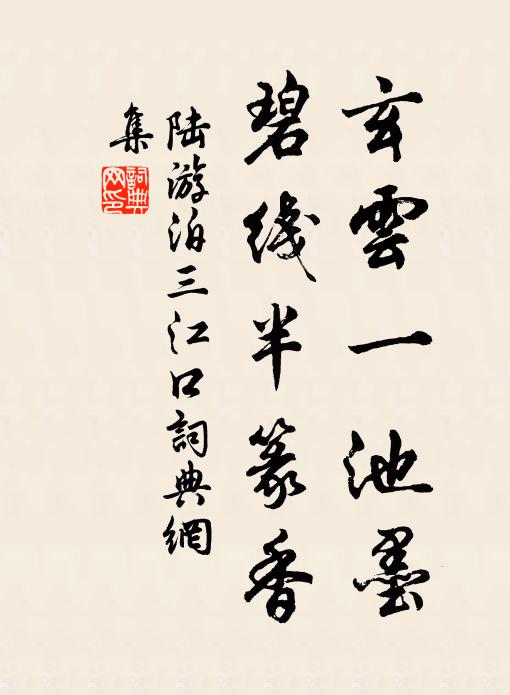 玄雲一池墨
碧线半篆香
陆游泊三江口詞典網
集
詞典网印